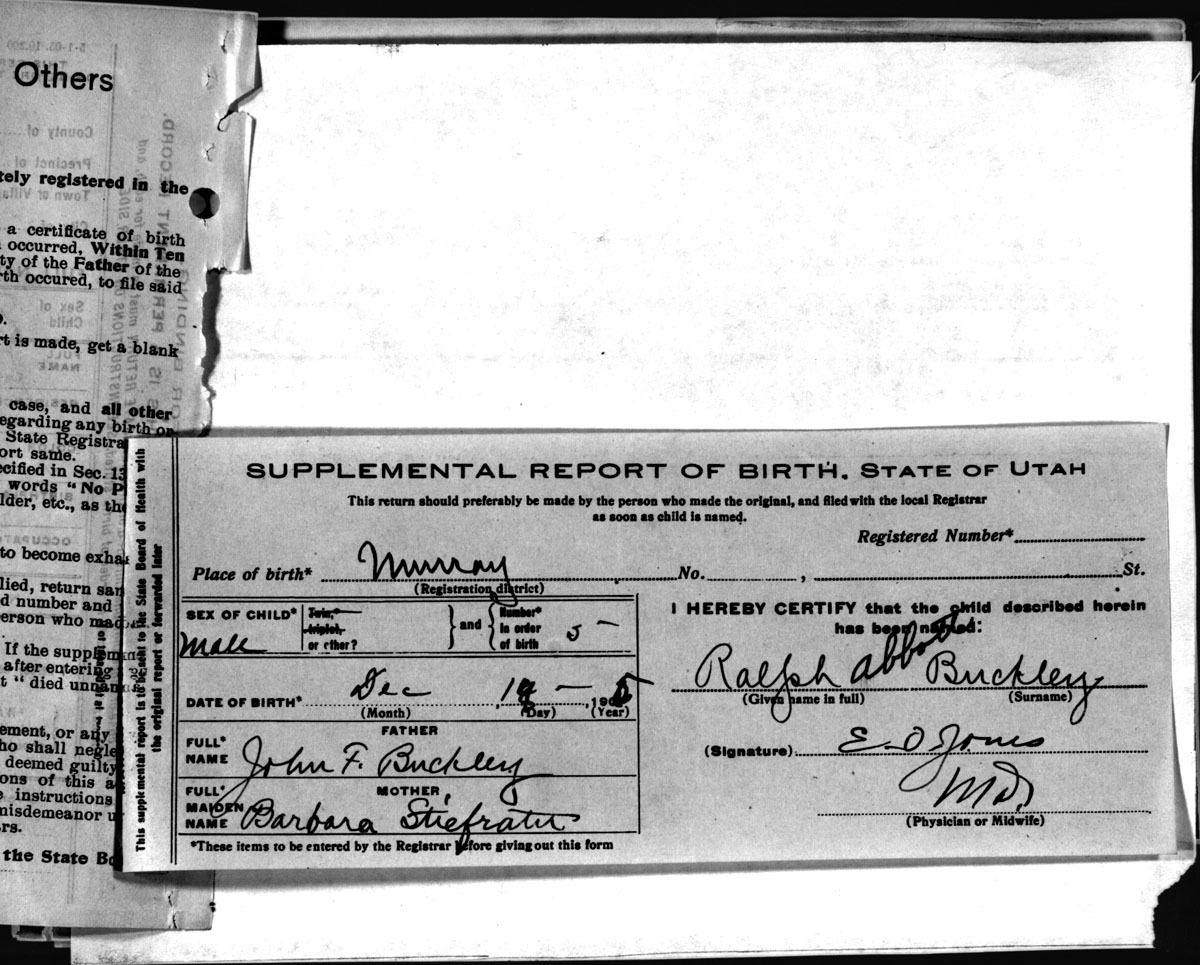 Others
tely registered in the
a certificate of birth
occurred, Within Ten
ty of the Father of the
rth occured, to file said
rt is made, get a blank
case, and all other
egarding any birth or
State Registra
ort same.
ecified in Sec. 13
words "No P
lder, etc., as the
to become exha
lied, return sam
d number and
erson who mad
If the supplem
after entering
t "died unnam
ement, or any
ho shall negle
deemed guilty
ons of this a
instructions
misdemeanor u
rs.
the State Bo
This supplemental report is to be sent to the State Board of Health with
the original report or forwarded later
SUPPLEMENTAL REPORT OF BIRTH. STATE OF UTAH
This return should preferably be made by the person who made the original, and filed with the local Registrar
as soon as child is named.
Registered Number*
Place of birth* Murray No. , St.
(Registration district)
SEX OF CHILD* Male
Twin,
triplet,
or other?
and
Number*
in order
of birth
5 -
DATE OF BIRTH* Dec , 190
(Month) (Day) (Year)
FATHER
FULL*
NAME John F. Buckley
MOTHER
FULL*
MAIDEN
NAME Barbara Stiefrater
*These items to be entered by the Registrar before giving out this form
I HEREBY CERTIFY that the child described herein
has been named:
Ralph Abbott Buckley
(Given name in full) (Surname)
(Signature) E. O Jones
M.D.
(Physician or Midwife)